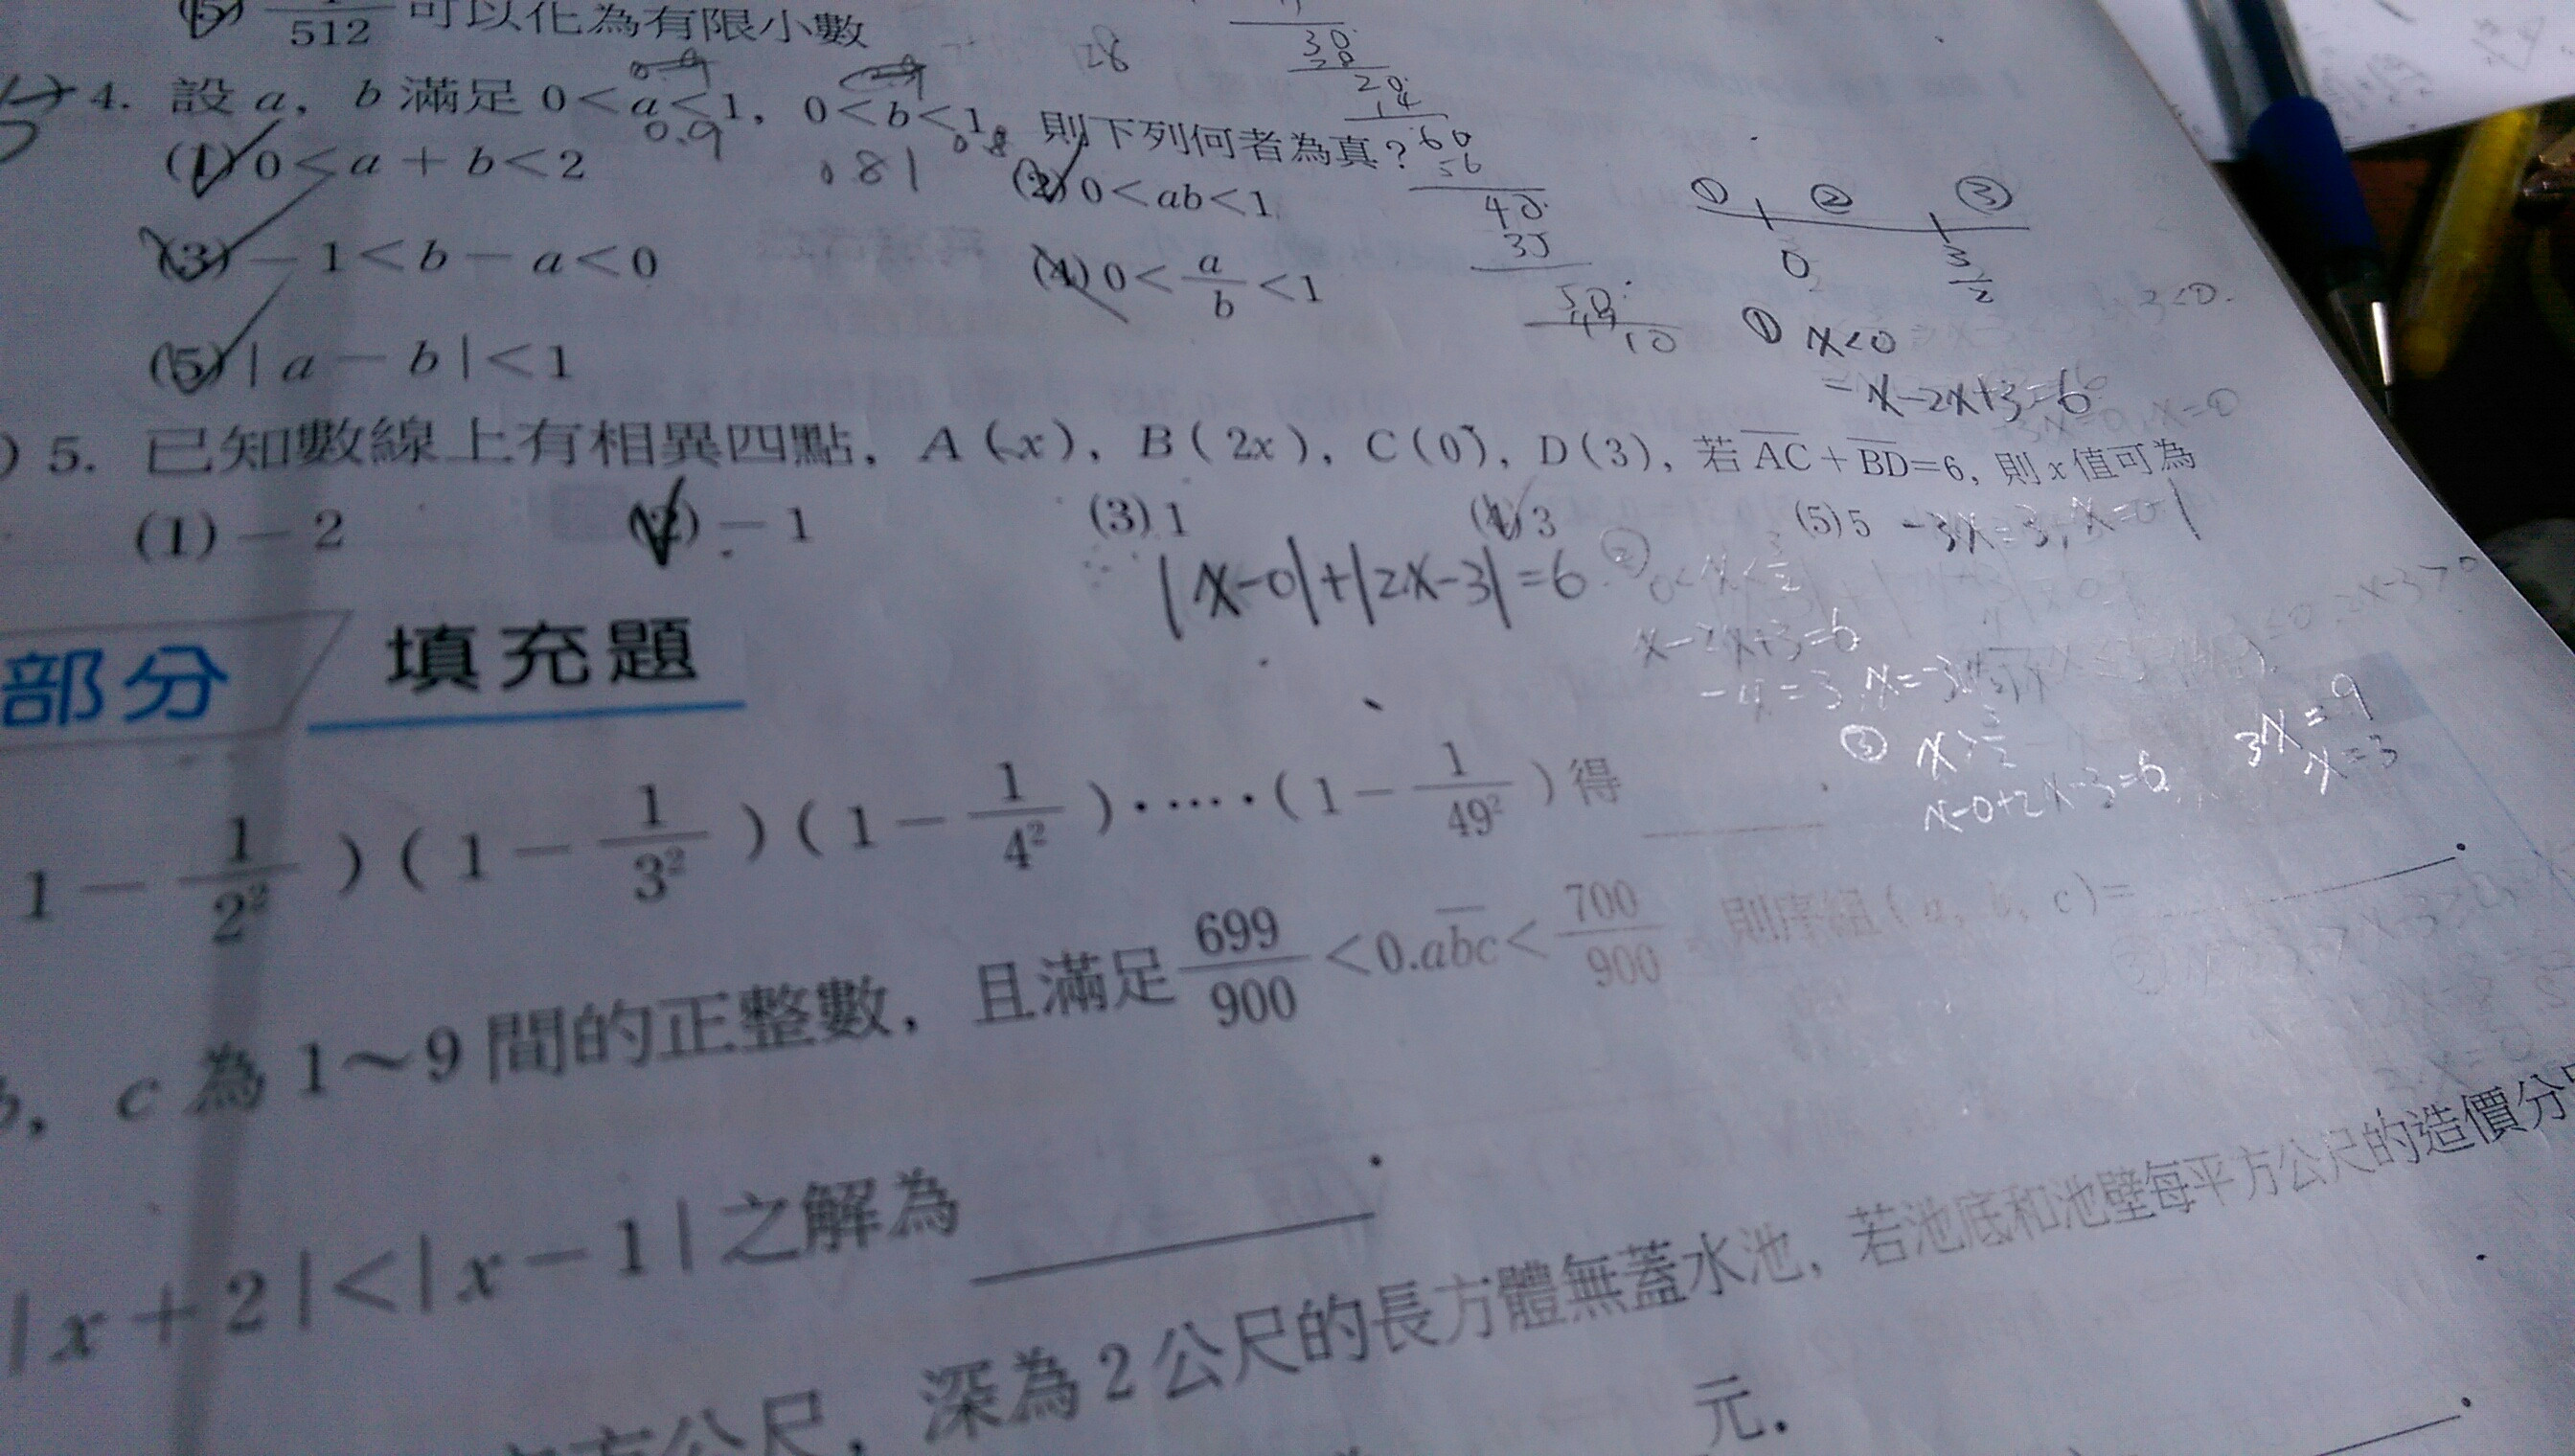 (5) 1/512 可以化為有限小數
4. 設 a, b 滿足 0<a<1, 0<b<1, 則下列何者為真?
0.9 0.8 .81
(1) 0<a+b<2 (2) 0<ab<1
(3) -1<b-a<0 (4) 0<a/b<1
(5) |a-b|<1
28
30
28
20
14
60
56
40
35
50
49
10
① ② ③
0 3/2
① x<0
-x-2x+3=6
5. 已知數線上有相異四點, A(x), B(2x), C(0), D(3), 若 AC+BD=6, 則 x 值可為
(1) -2 (2) -1 (3) 1 (4) 3 (5) 5
-3x=3, x=
|x-0|+|2x-3|=6
② 0<x<3/2
x-2x+3=6
-x=3, x=-3
③ x>3/2
x-0+2x-3=6
3x=9
x=3
部分 填充題
1-1/2²)(1-1/3²)(1-1/4²)······(1-1/49²)得
, c 為 1~9 間的正整數, 且滿足 699/900<0.abc<700/900, 則序組(a, b, c)= .
|x+2|<|x-1| 之解為 .
方公尺, 深為 2 公尺的長方體無蓋水池, 若池底和池壁每平方公尺的造價分
元.